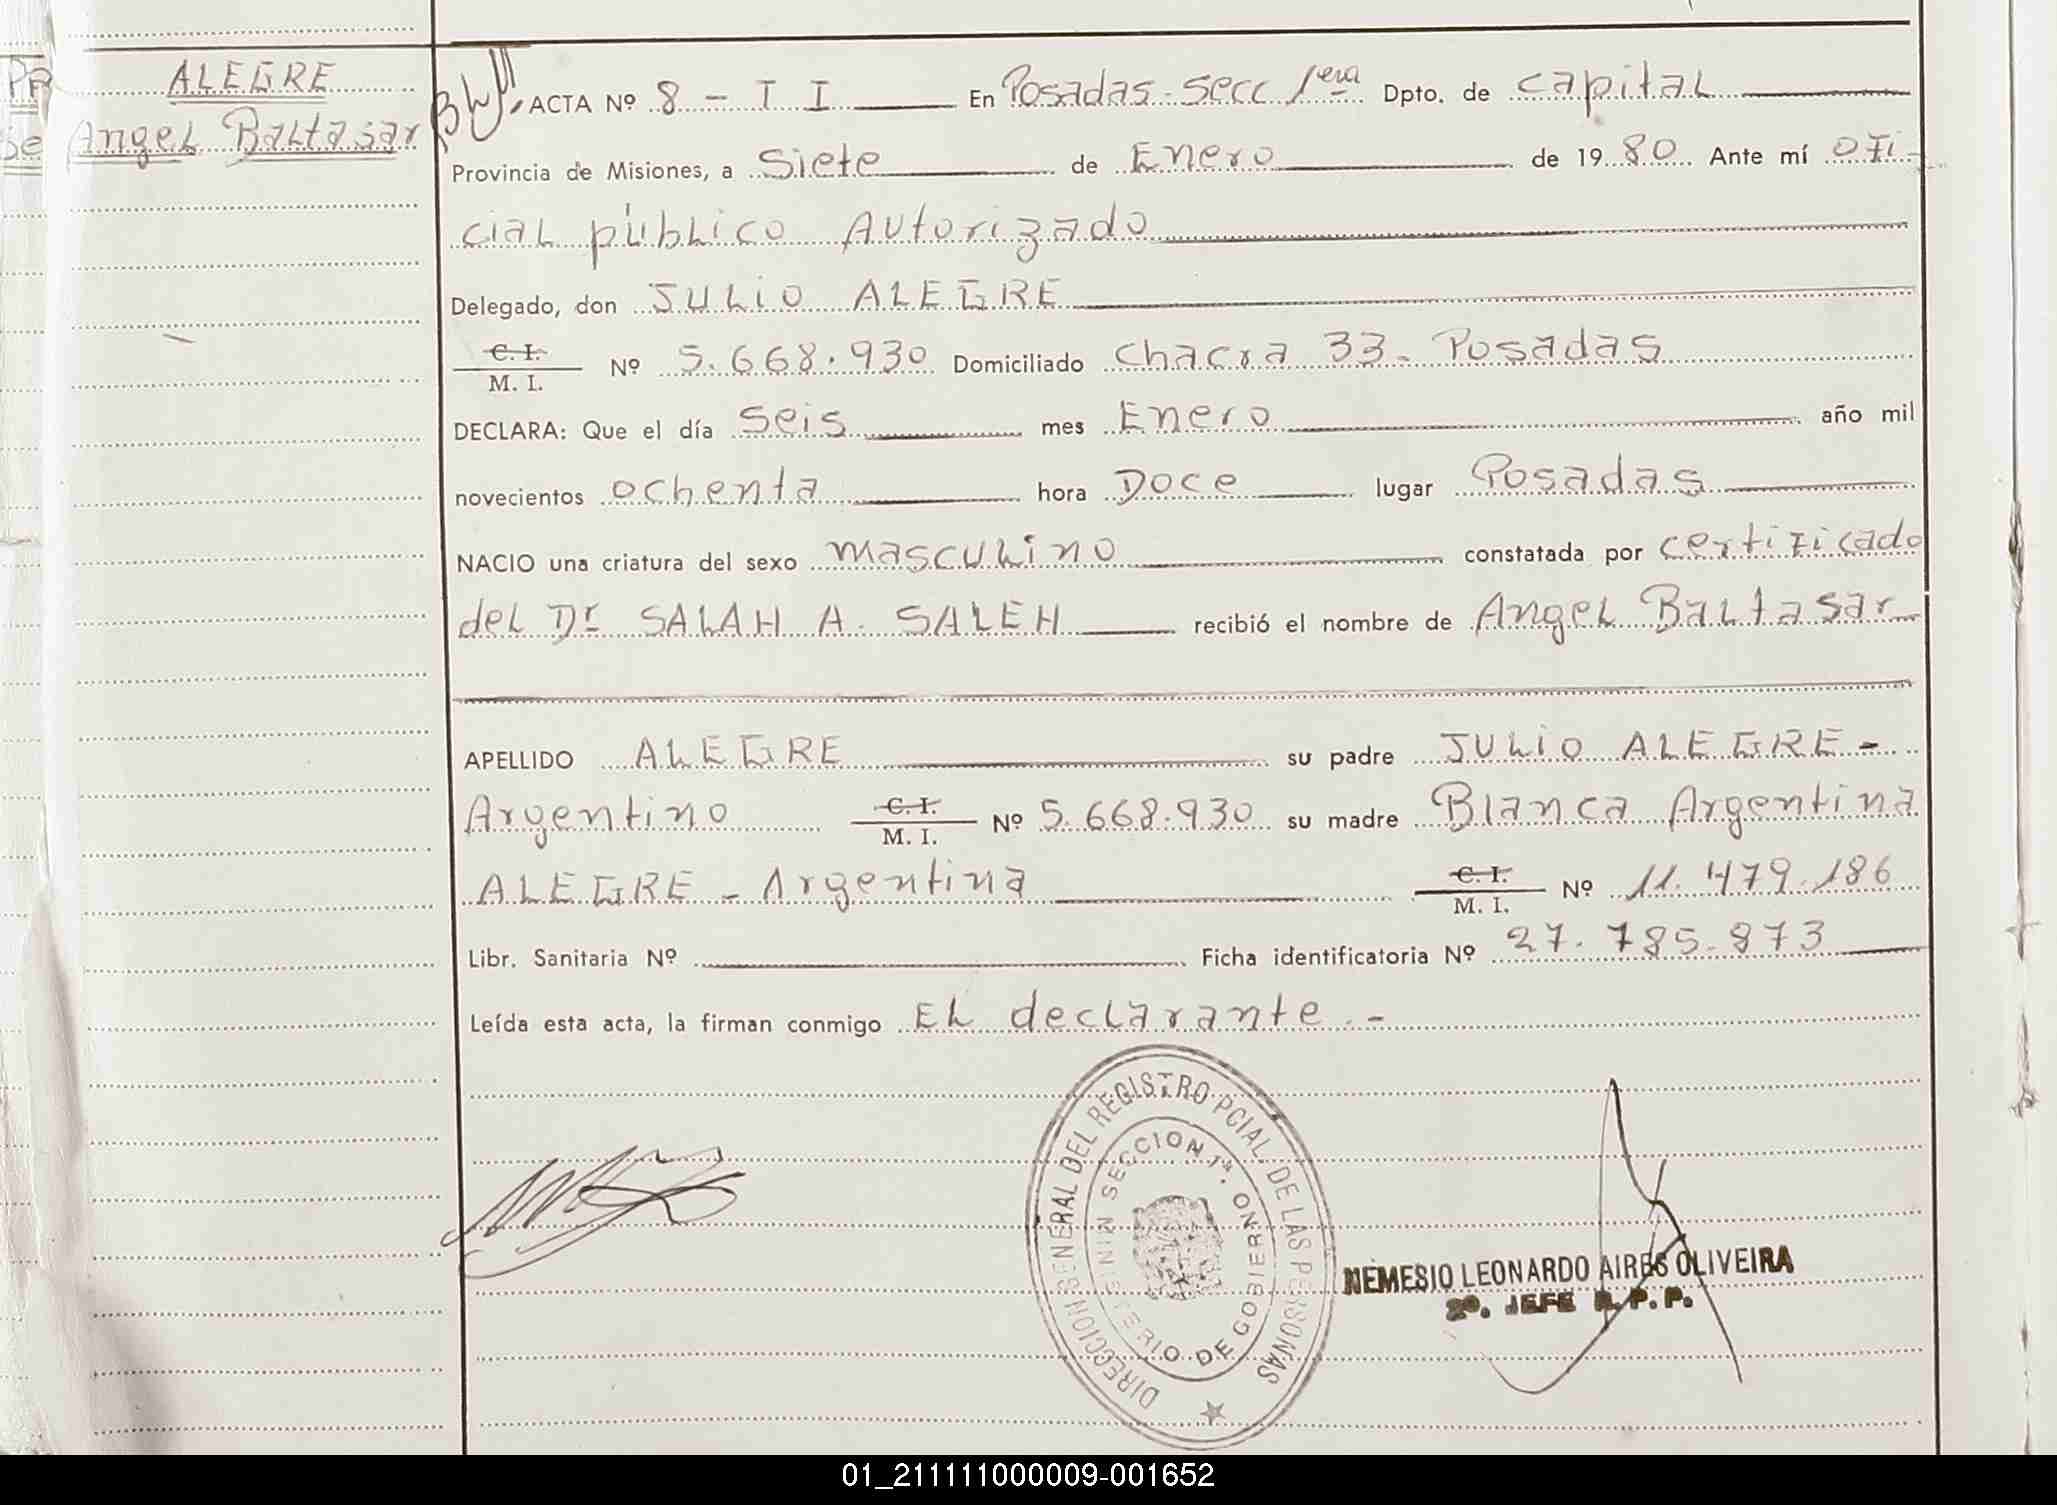 ALEGRE
Angel Baltasar
ACTA Nº 8 - T I En Posadas - Secc 1era Dpto. de Capital
Provincia de Misiones, a Siete de Enero de 1980 Ante mí ofi-
cial público Autorizado
Delegado, don JULIO ALEGRE
C. I.
M. I. Nº 5.668.930 Domiciliado Chacra 33 - Posadas
DECLARA: Que el día Seis mes Enero año mil
novecientos ochenta hora Doce lugar Posadas
NACIO una criatura del sexo masculino constatada por certificado
del Dr SALAH A. SALEH recibió el nombre de Angel Baltasar
APELLIDO ALEGRE su padre JULIO ALEGRE -
Argentino C. I.
M. I. Nº 5.668.930 su madre Blanca Argentina
ALEGRE - Argentina C. I.
M. I. Nº 11.479.186
Libr. Sanitaria Nº Ficha identificatoria Nº 27.785.873
Leída esta acta, la firman conmigo El declarante. -
DIRECCION GENERAL DEL REGISTRO PCIAL. DE LAS PERSONAS
SECCION 1ª.
MINISTERIO DE GOBIERNO
NEMESIO LEONARDO AIRES OLIVEIRA
2º. JEFE R. P. P.
01_211111000009-001652